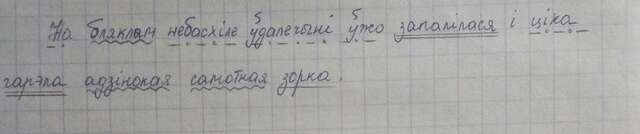 На бляклам небасхіле ўдалечыні ўжо запалілася і ціха
гарэла адзінокая самотная зорка.